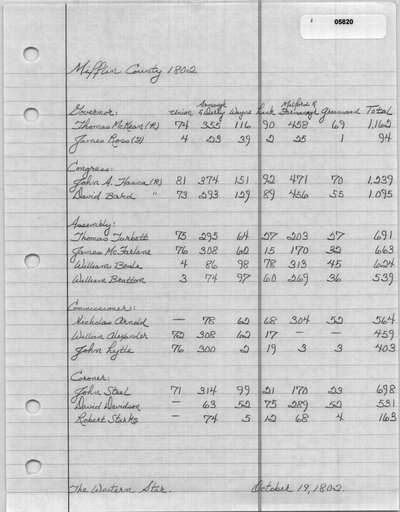 2 05820
Mifflin County 1802
Armagh Milford &
Governor: Union & Derry Wayne Lack Fermanagh Greenwood Total
Thomas McKean (R) 74 355 116 90 458 69 1,162
James Ross (F) 4 23 39 2 25 1 94
Congress:
John A. Hanna (R) 81 374 151 92 471 70 1,239
David Bard " 73 293 129 89 456 55 1,095
Assembly:
Thomas Turbett 75 295 64 27 203 27 691
James McFarlane 76 308 62 15 170 32 663
William Beale 4 86 98 78 313 45 624
William Bratton 3 74 97 60 269 36 539
Commissioner:
Nicholas Arnold — 78 62 68 304 52 564
William Alexander 72 308 62 17 — — 459
John Lytle 76 300 2 19 3 3 403
Coroner:
John Steel 71 314 99 21 170 23 698
David Davidson — 63 52 75 289 52 531
Robert Starks — 74 5 12 68 4 163
The Western Star. October 19, 1802.